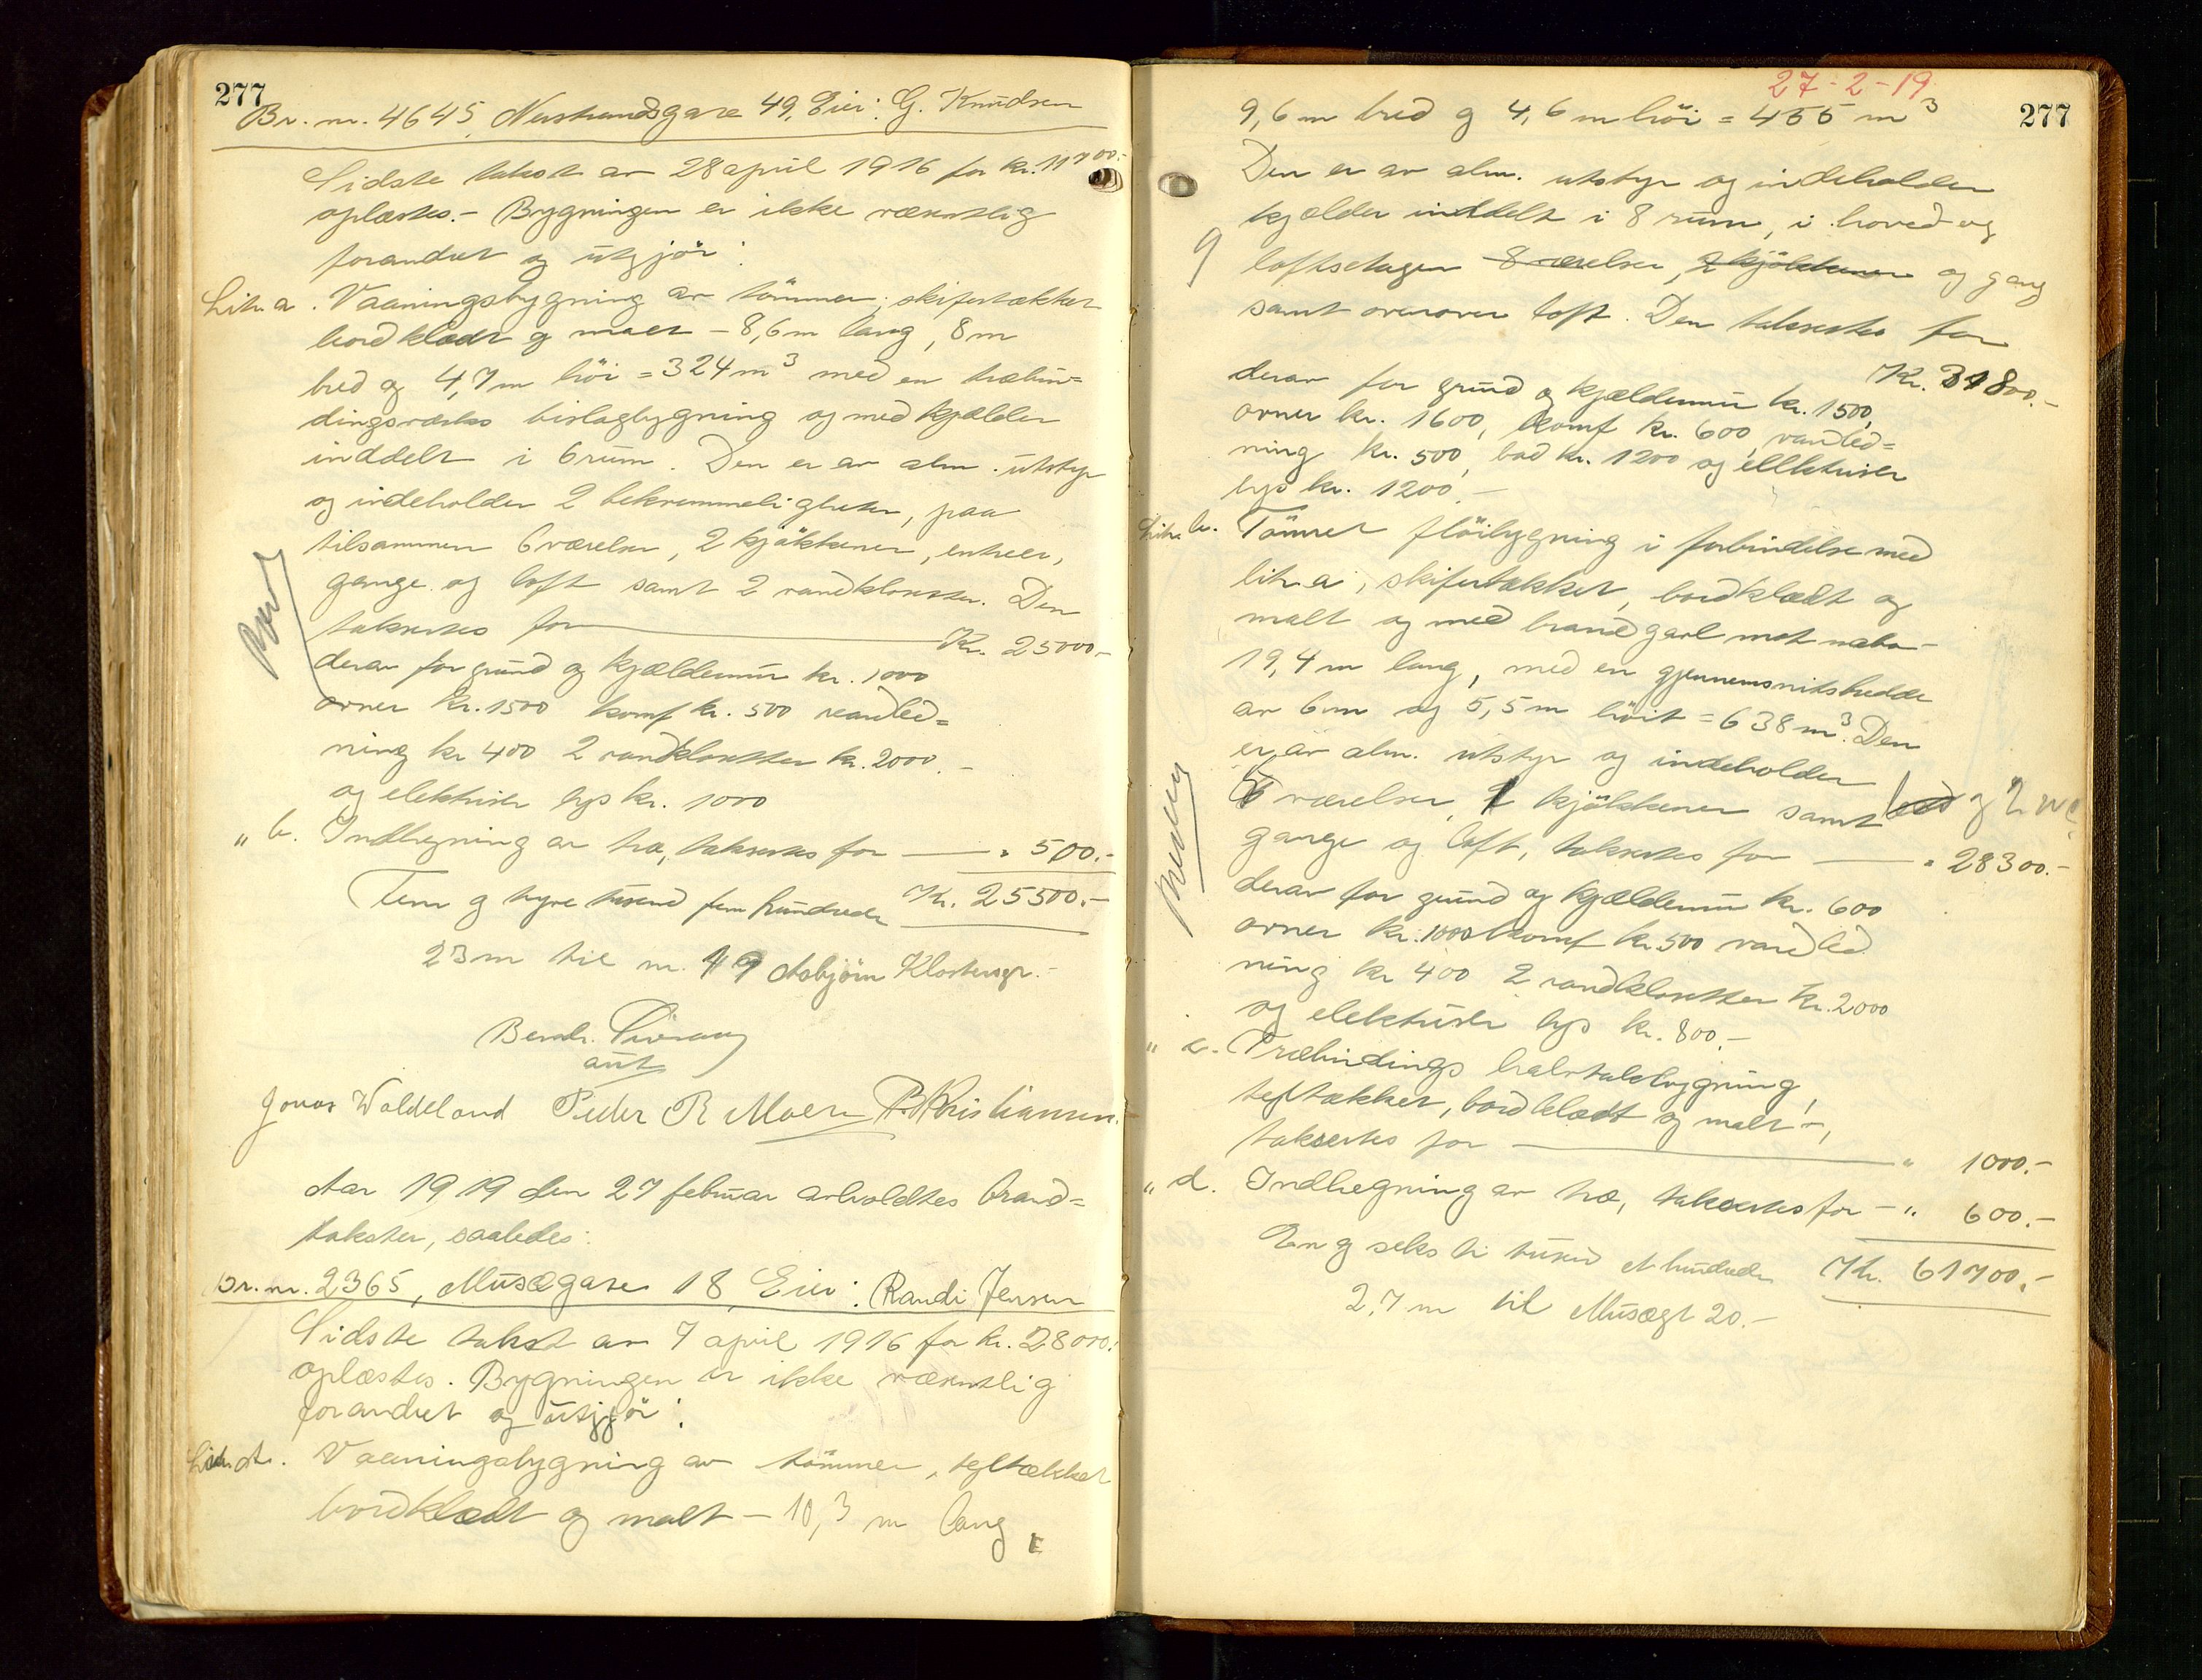 277
Br. nr. 4645, Nerstrandsgare 49, Eier: G. Knudsen
Sidste takst av 28 april 1916 for kr. 11700.-
oplæstes.- Bygningen er ikke væsentlig
forandret og utgjör:
Litr. a. Vaaningsbygning av tömmer, skifertækket
bordklædt og malt - 8,6 m lang, 8 m
bred og 4,7 m höi = 324 m³ med en træbin=
dingsverks bislagbygning og med kjælder
inddelt i 6 rum. Den er av alm. utstyr
og indeholder 2 bekvemmeligheter, paa
tilsammen 6 værelser, 2 kjökkener, entreer,
gange og loft samt 2 vandklosetter. Den
takseres for Kr. 25000.-
derav for grund og kjældermur kr. 1000
ovner kr. 1500 komf kr. 500 vandled=
ning kr 400 2 vandklosetter kr. 2000.-
og elektrisk lys kr. 1000
" b. Indhegning av træ, takseres for " 500.-
Fem og tyve tusend fem hundrede Kr. 25500.-
23 m til nr. 49 Asbjörn Klostersgr.-
Bernh.
aut
Jonas Waldeland Peder R Moen P. Kristiansen.
Aar 1919 den 27 februar avholdtes brand=
takster, saaledes:
Br. nr. 2365, Musægare 18, Eier: Randi Jensen
Sidste takst av 7 april 1916 for kr. 28000.-
oplæstes. Bygningen er ikke væsentlig
forandret og utgjör:
Litr. a. Vaaningsbygning av tömmer, tegltækket
bordklædt og malt - 10,3 m lang,
27-2-19.
277
9,6 m bred og 4,6 m höi = 455 m³
Den er av alm. utstyr og indeholder
kjælder inddelt i 8 rum, i hoved og
9 loftsetagen 8 værelser, 2 kjökkener og gang
samt overover loft. Den takseres for
Kr. 31800.-
derav for grund og kjældermur kr. 1500,
ovner kr. 1600, komf kr. 600, vandled=
ning kr. 500, bad kr. 1200 og ellektrisk
lys kr. 1200.-
Litr. b. Tömret flöibygning i forbindelse med
litr. a, skifertækket, bordklædt og
malt og med brandgavl mot nabo -
19,4 m lang, med en gjennemsnitsbredde
av 6 m og 5,5 m höit = 638 m³. Den
er av alm. utstyr og indeholder
værelser, 1 kjökkener samt bad og 2 WC
gange og loft, takseres for " 28300.-
derav for grund og kjældermur kr. 600
ovner kr. 1000 komf kr. 500 vandled
ning kr 400 2 vandklosetter kr. 2000
og elektrisk lys kr. 800.-
" c. Træbindings halvtakbygning,
tegltækket, bordklædt og malt -,
takseres for " 1000.-
" d. Indhegning av træ, takseres for - " 600.-
En og seksti tusend et hundrede Kr. 61700.-
2,7 m til Musægt 20.-